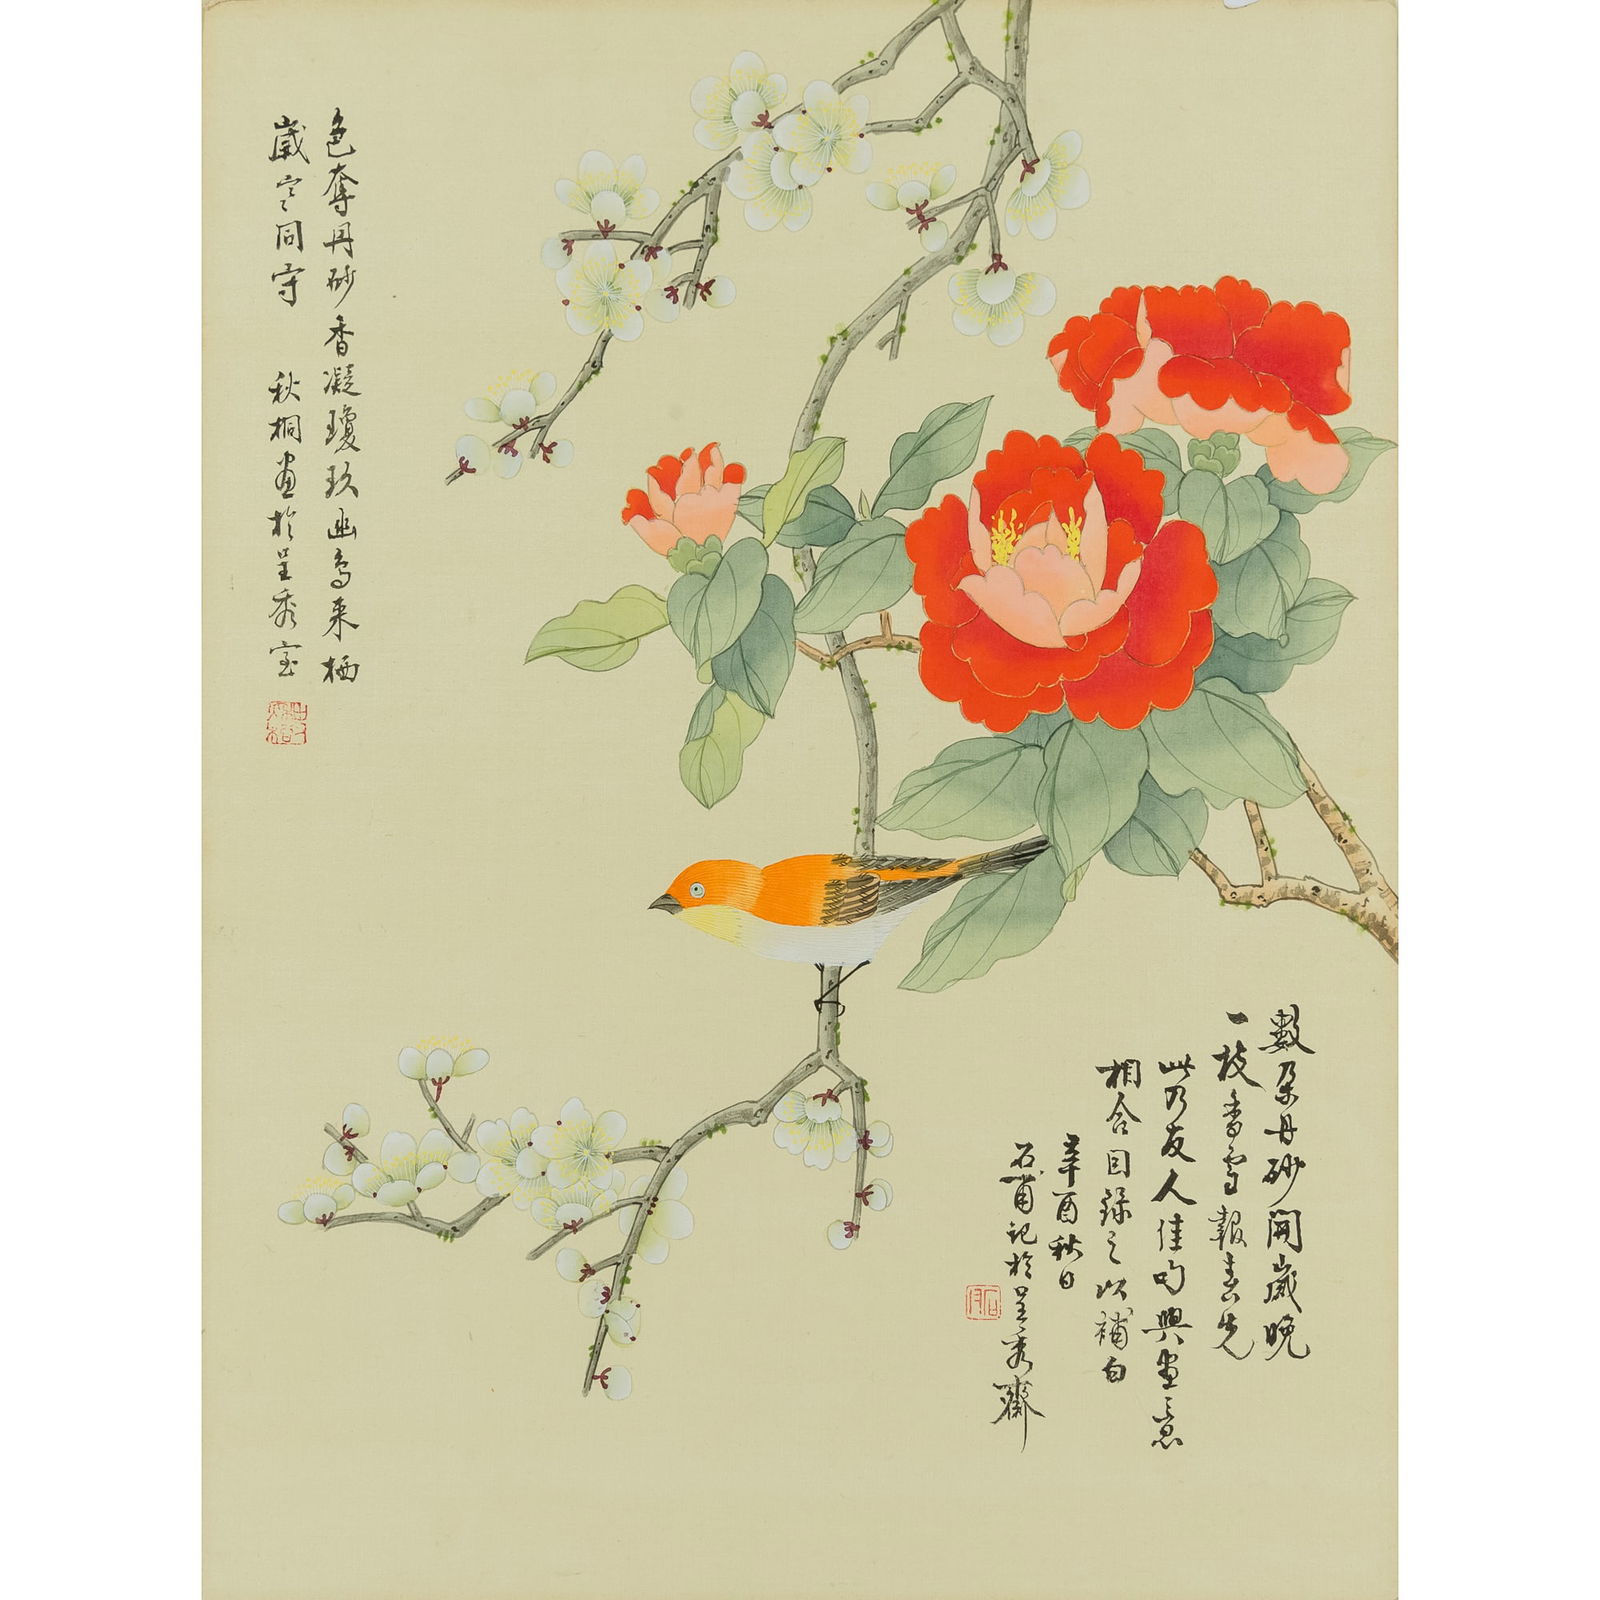 色奪丹砂香凝瓊玖幽鳥来栖
歲寒同守 秋桐画於呈秀室
數朵丹砂開歲晚
一枝香雪報春先
此乃友人佳句與畫意
相合因錄之以補白
辛酉秋日
石甫記於呈秀齋